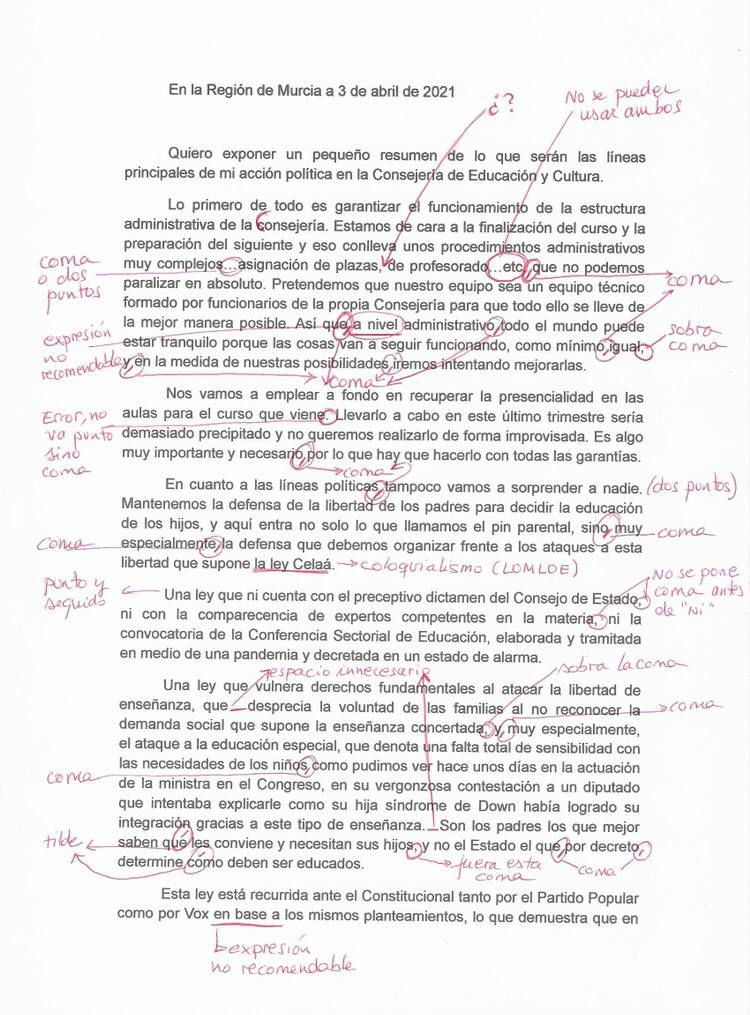 En la Región de Murcia a 3 de abril de 2021
¿?
No se pueden
usar ambos
Quiero exponer un pequeño resumen de lo que serán las líneas
principales de mi acción política en la Consejería de Educación y Cultura.
Lo primero de todo es garantizar el funcionamiento de la estructura
administrativa de la Consejería. Estamos de cara a la finalización del curso y la
preparación del siguiente y eso conlleva unos procedimientos administrativos
coma
o dos
puntos
muy complejos...asignación de plazas, de profesorado...etc, que no podemos
coma
paralizar en absoluto. Pretendemos que nuestro equipo sea un equipo técnico
formado por funcionarios de la propia Consejería para que todo ello se lleve de
la mejor manera posible. Así que, a nivel administrativo, todo el mundo puede
expresión
no
recomendable
sobra
coma
estar tranquilo porque las cosas van a seguir funcionando, como mínimo, igual,
y, en la medida de nuestras posibilidades, iremos intentando mejorarlas.
coma
Nos vamos a emplear a fondo en recuperar la presencialidad en las
Error, no
va punto
sino
coma
aulas para el curso que viene. Llevarlo a cabo en este último trimestre sería
demasiado precipitado y no queremos realizarlo de forma improvisada. Es algo
muy importante y necesario, por lo que hay que hacerlo con todas las garantías.
coma
En cuanto a las líneas políticas, tampoco vamos a sorprender a nadie. (dos puntos)
Mantenemos la defensa de la libertad de los padres para decidir la educación
de los hijos, y aquí entra no solo lo que llamamos el pin parental, sino, muy
coma
coma
especialmente, la defensa que debemos organizar frente a los ataques a esta
libertad que supone la ley Celaá. coloquialismo (LOMLOE)
punto y
seguido
No se pone
coma antes
de "Ni"
Una ley que ni cuenta con el preceptivo dictamen del Consejo de Estado,
ni con la comparecencia de expertos competentes en la materia, ni la
convocatoria de la Conferencia Sectorial de Educación, elaborada y tramitada
en medio de una pandemia y decretada en un estado de alarma.
espacio innecesario
sobra la coma
Una ley que vulnera derechos fundamentales al atacar la libertad de
enseñanza, que desprecia la voluntad de las familias al no reconocer la
coma
demanda social que supone la enseñanza concertada, y, muy especialmente,
el ataque a la educación especial, que denota una falta total de sensibilidad con
coma
las necesidades de los niños, como pudimos ver hace unos días en la actuación
de la ministra en el Congreso, en su vergonzosa contestación a un diputado
que intentaba explicarle como su hija síndrome de Down había logrado su
integración gracias a este tipo de enseñanza. Son los padres los que mejor
tilde
saben qué les conviene y necesitan sus hijos, y no el Estado el que, por decreto,
determine cómo deben ser educados.
fuera esta
coma
coma
Esta ley está recurrida ante el Constitucional tanto por el Partido Popular
como por Vox en base a los mismos planteamientos, lo que demuestra que en
expresión
no recomendable